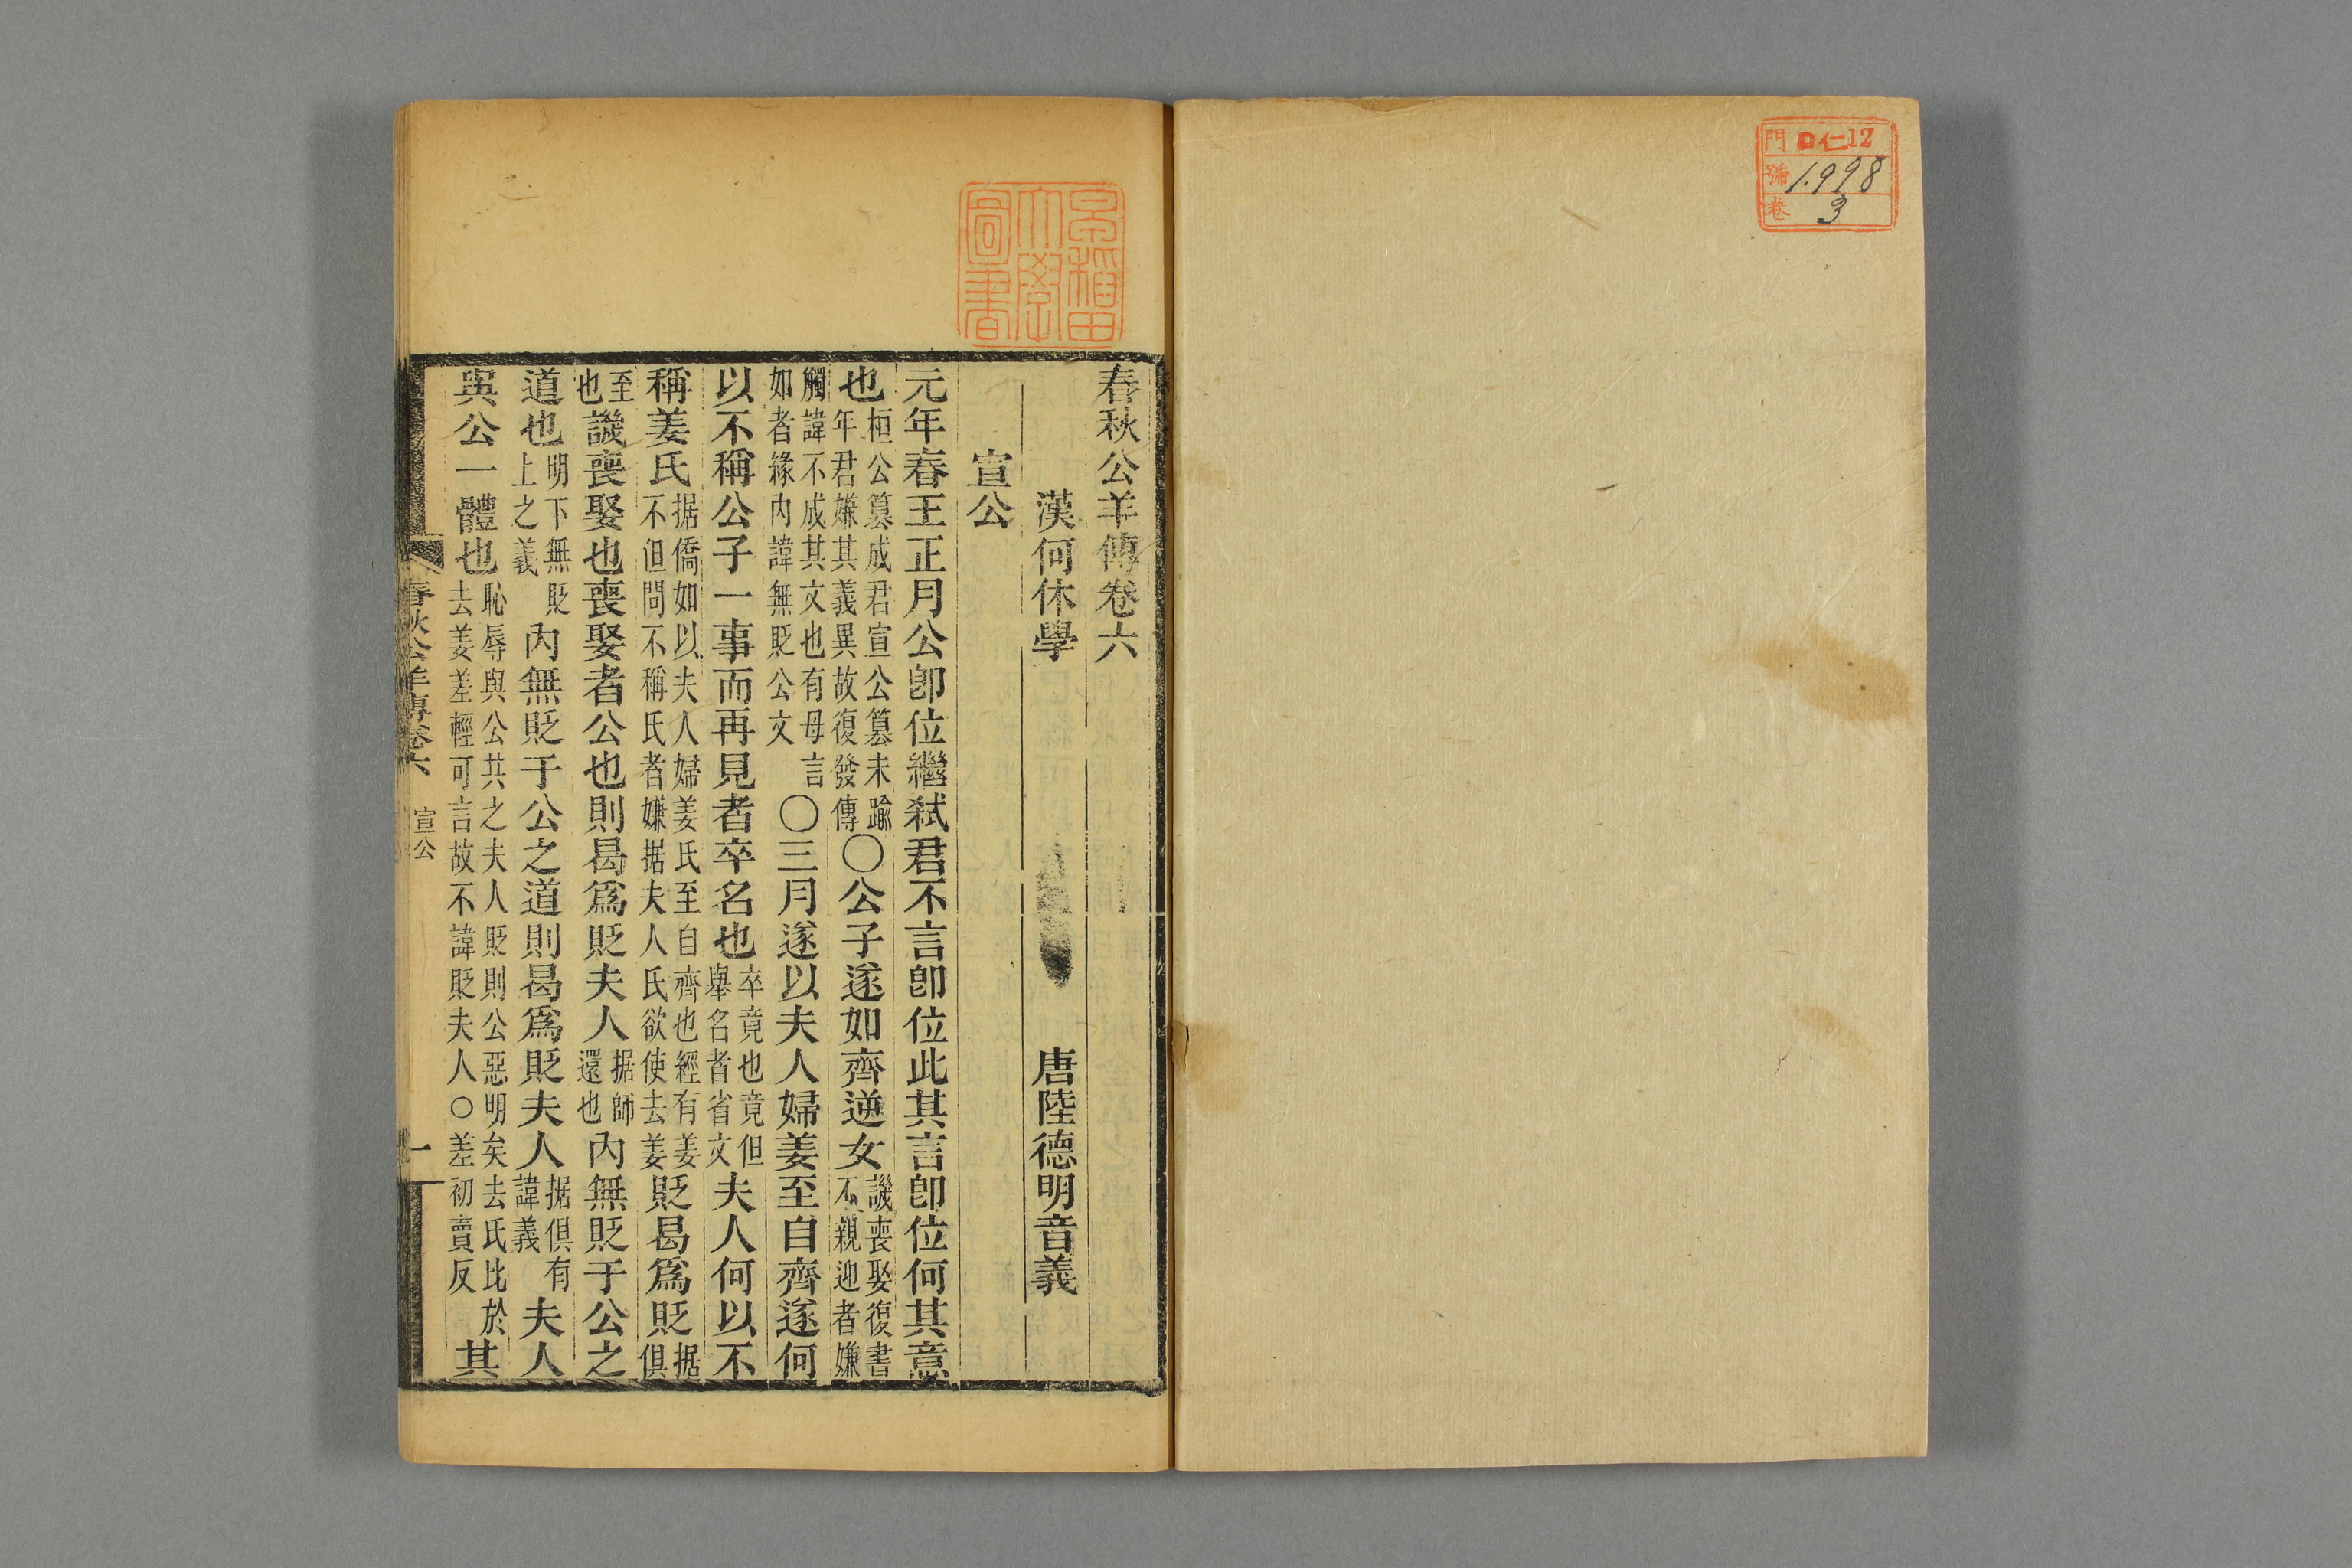 門 ロ仁12
號 1.998
卷 3
早稲田
大學
圖書
春秋公羊傳卷六
漢何休學 唐陸德明音義
宣公
元年春王正月公卽位繼弑君不言卽位此其言卽位何其意
也桓公篡成君宣公篡未踰年君嫌其義異故復發傳〇公子遂如齊逆女譏喪娶復書不親迎者嫌
觸諱不成其文也有母言如者緣内諱無貶公文〇三月遂以夫人婦姜至自齊遂何
以不稱公子一事而再見者卒名也卒竟也竟但舉名者省文夫人何以不
稱姜氏据僑如以夫人婦姜氏至自齊也經有姜不但問不稱氏者嫌据夫人氏欲使去姜貶曷爲貶据俱
至也譏喪娶也喪娶者公也則曷爲貶夫人据師還也内無貶于公之
道也明下無貶上之義内無貶于公之道則曷爲貶夫人据俱有諱義夫人
與公一體也恥辱與公共之夫人貶則公惡明矣去氏比於去姜差輕可言故不諱貶夫人〇差初賣反其
春秋公羊傳卷六 宣公 一